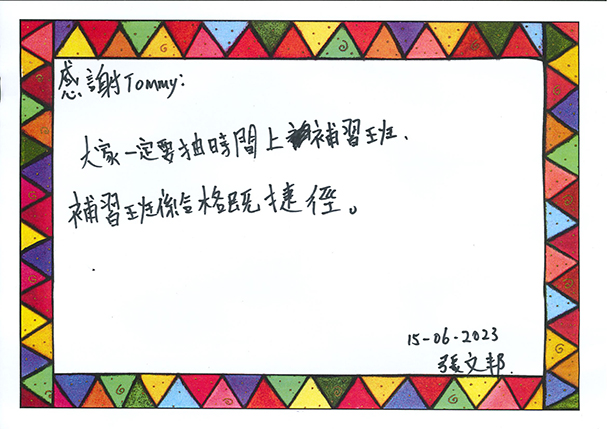 感謝Tommy:
大家一定要抽時間上補習班.
補習班係合格既捷徑。
15-06-2023
張文邦